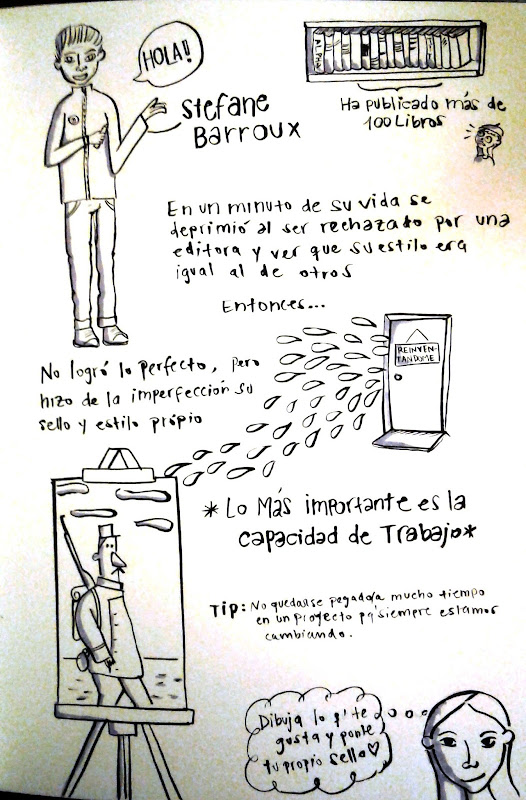 HOLA!!
Stefane
Barroux
Ha publicado más de
100 Libros
En un minuto de su vida se
deprimió al ser rechazado por una
editora y ver que su estilo era
igual al de otros
Entonces...
REINVEN-
TANDOME
No logró lo perfecto, pero
hizo de la imperfección su
sello y estilo própio
*Lo Más importante es la
capacidad de Trabajo*
Tip: No quedarse pegado/a mucho tiempo
en un proyecto pq' siempre estamos
cambiando.
Dibuja lo q' te
gusta y ponle
tu propio sello